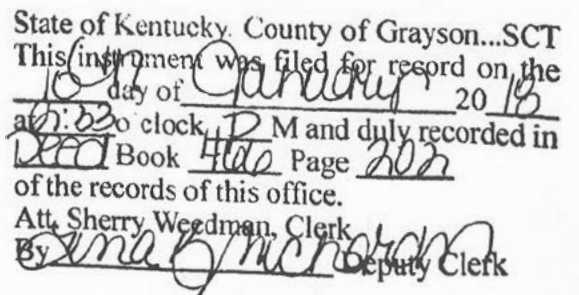 State of Kentucky. County of Grayson...SCT
This instrument was filed for record on the
day of January 20 18
at o'clock P M and duly recorded in
Deed Book 466 Page 202
of the records of this office.
Att. Sherry Weedman, Clerk
By Deputy Clerk